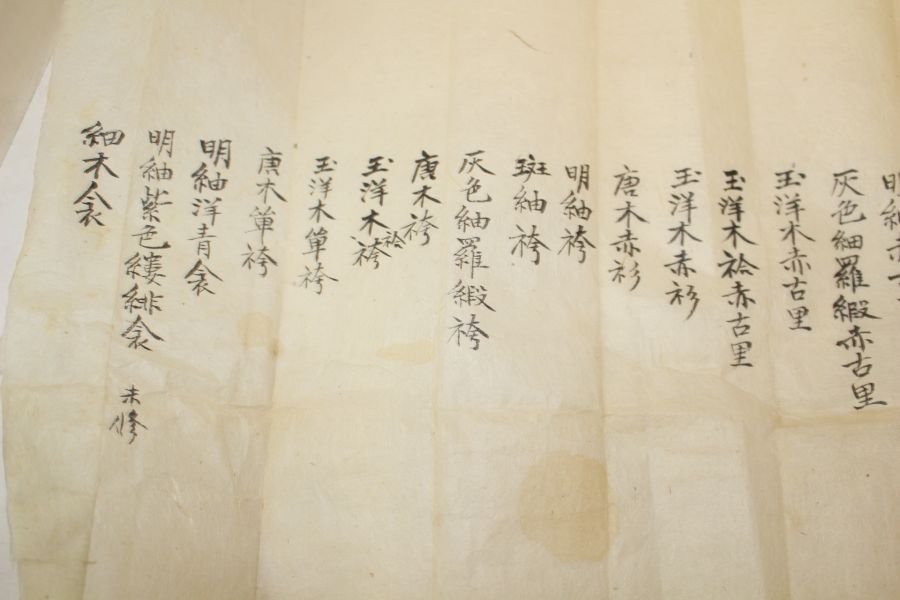 明紬赤古
灰色紬羅緞赤古里
玉洋木赤古里
玉洋木袷赤古里
玉洋木赤衫
唐木赤衫
明紬袴
斑紬袴
灰色紬羅緞袴
唐木袴
玉洋木袷袴
玉洋木単袴
唐木単袴
明紬洋青衾
明紬紫色縷緋衾 未修
細木衾